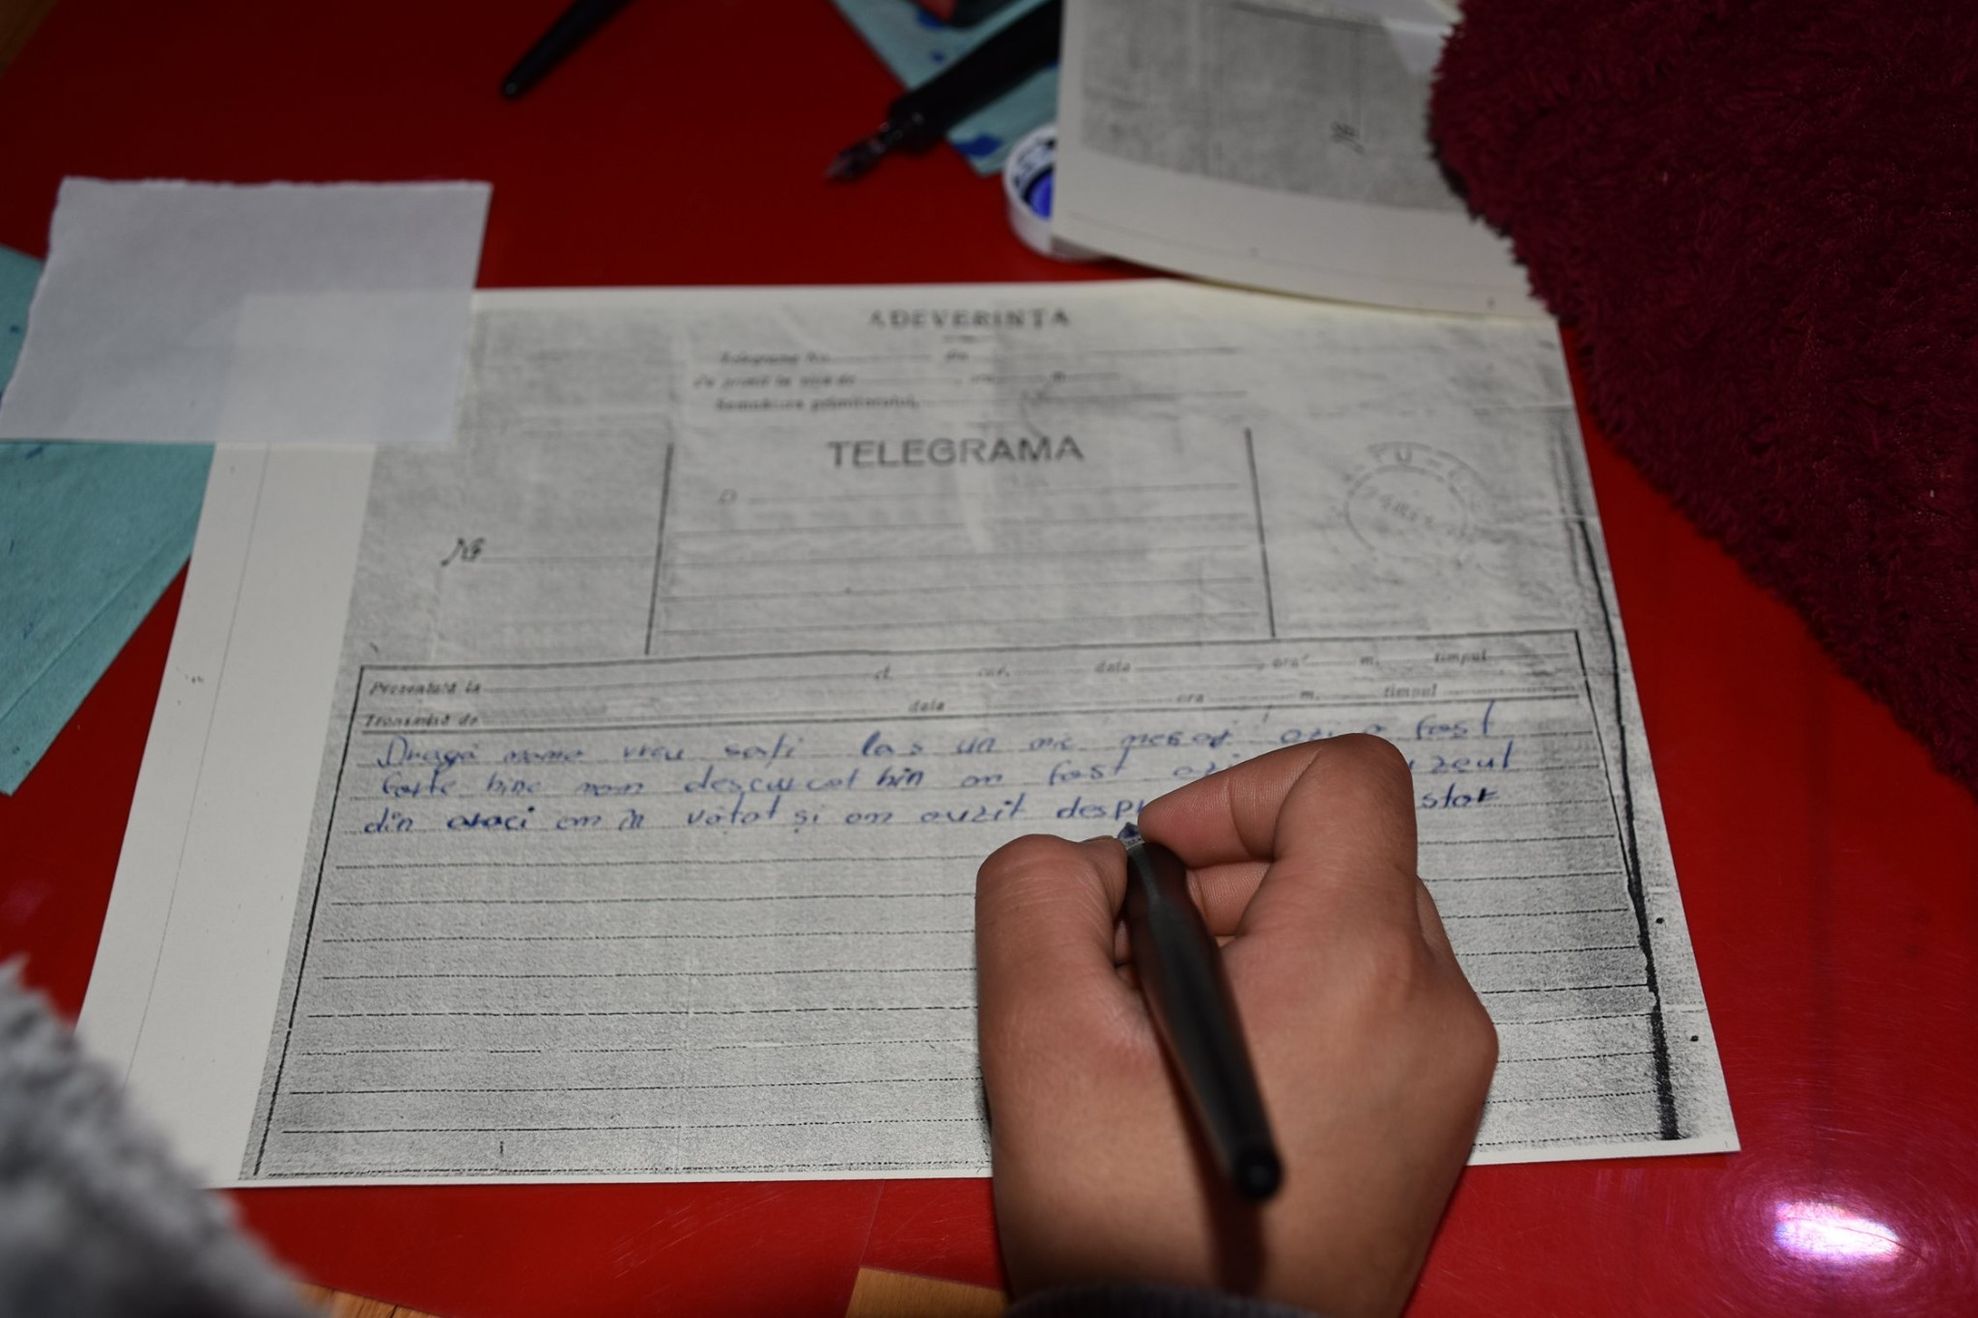 ADEVERINȚA
Telegrama No. de
Semnătura primitorului,
TELEGRAMA
Nr
Prezentată la ct. cuv. data , ora m. timpul
Transmisă de data ora m. timpul
Dragă mama vreu sați las un mic mesaj azi a fost
forte bine mam descurcat bin am fost
din araci am în vățat și am auzit desp